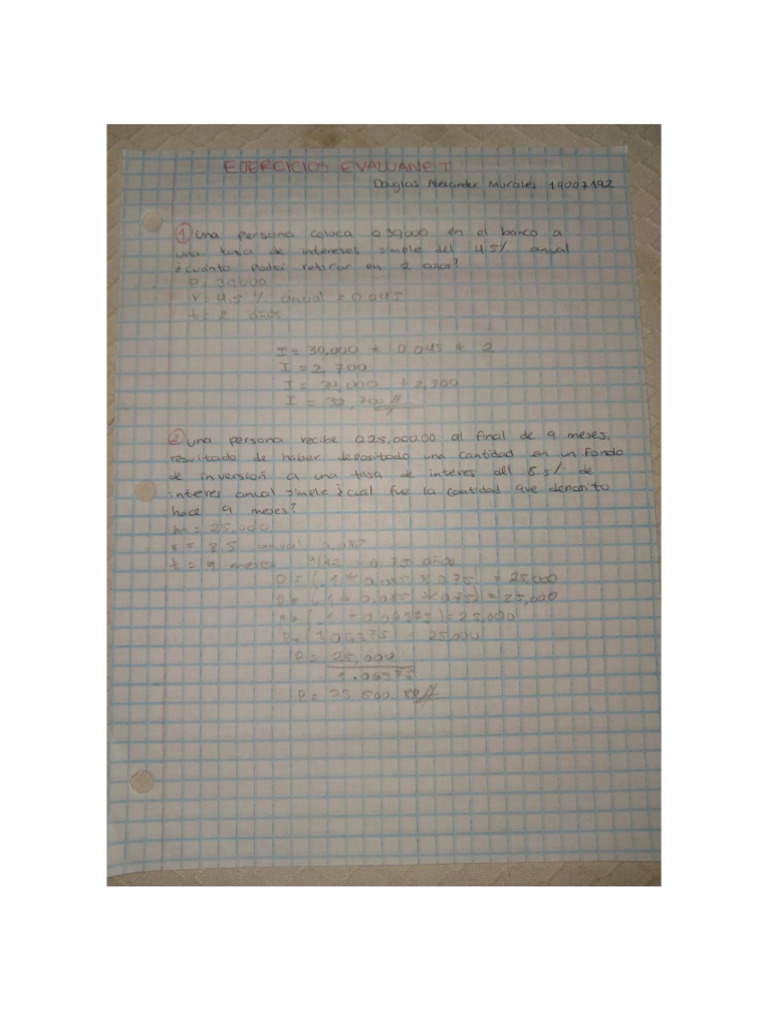 EJERCICIOS EVALUANET
Douglas Alexander Morales 19007192
1) Una persona coloca Q30,000 en el banco a
una tasa de intereses simple del 4.5% anual
¿cuánto podrá retirar en 2 años?
P = 30,000
r = 4.5 % anual = 0.045
t = 2 años
I = 30,000 * 0.045 * 2
I = 2,700
I = 30,000 + 2,700
I = 32,700//
2) una persona recibe Q25,000.00 al final de 9 meses,
resultado de haber depositado una cantidad en un Fondo
de inversión a una tasa de interes del 8.5% de
interes anual simple ¿cual fue la cantidad que deposito
hace 9 meses?
m = 25,000
r = 8.5 anual 0.085
t = 9 meses 9/12 = 0.75 años
P = (1 + 0.085 * 0.75) = 25,000
P = (1 + 0.085 * 0.75) = 25,000
P = (1 + 0.06375) = 25,000
P = (1.06375) = 25,000
P = 25,000
1.06375
P = 23,500.88//